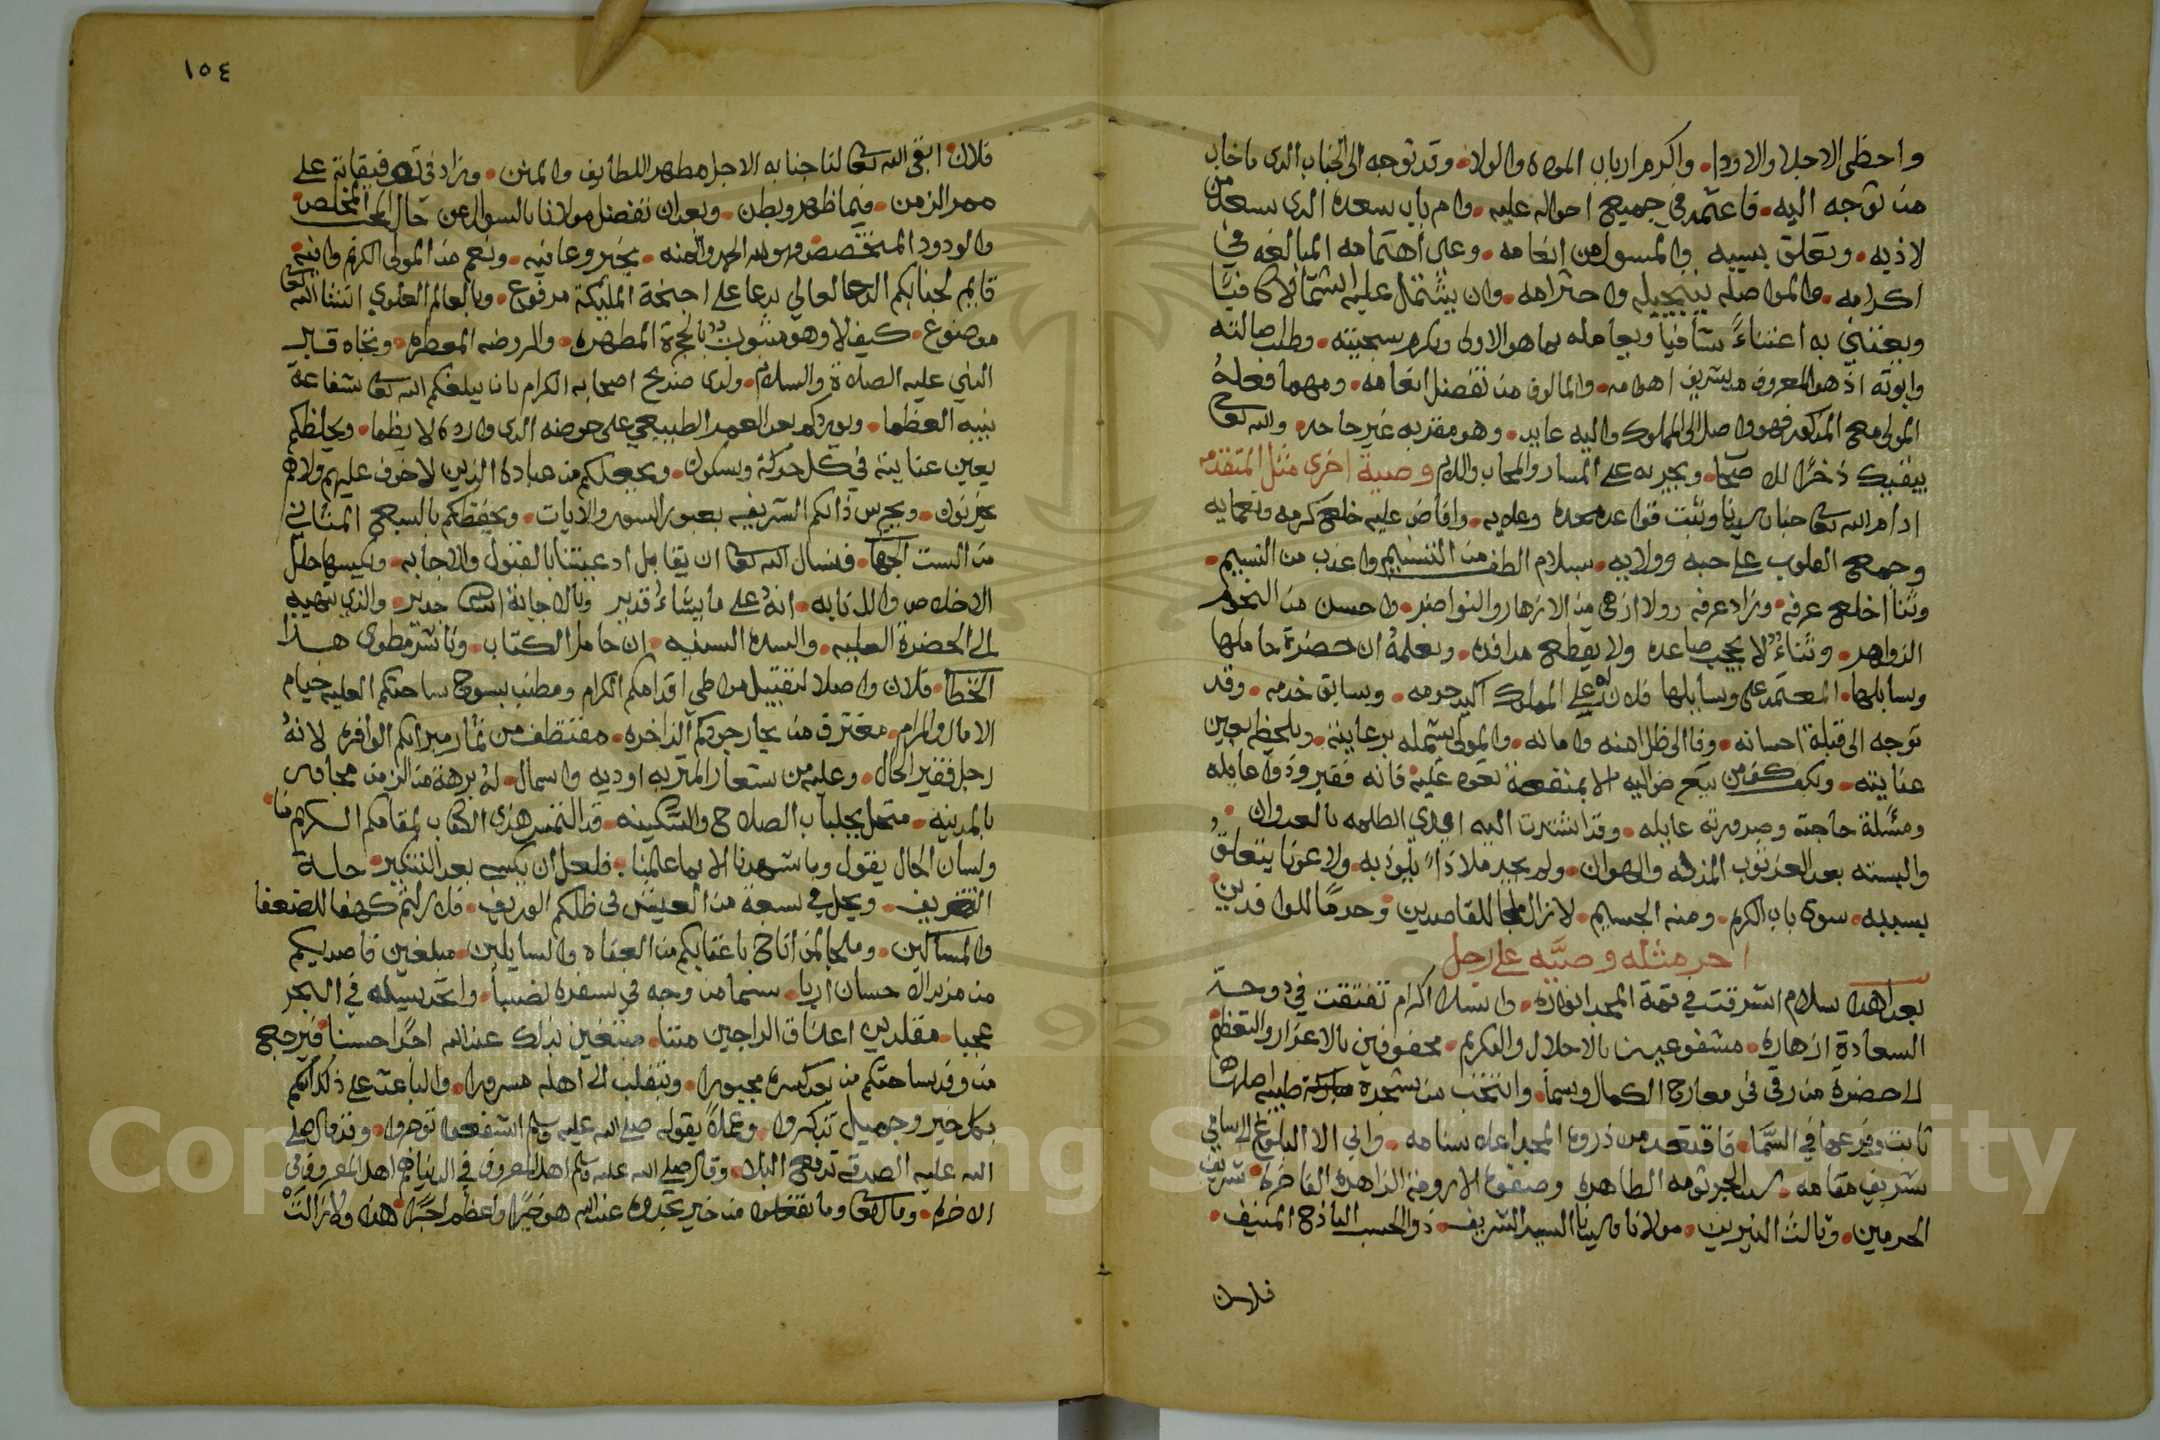 واحظى الاجلا والاودا. واكرم ارباب الموده والولاء. وقد توجه الى الجناب الذي ما خاب
من توجه اليه. فاعتمد في جميع احواله عليه. وام باب سعده الذي يسعد من
لاذ به. وتعلق بسببه والمسول من انعامه. وعلى اهتمامه المبالغه في
اكرامه. والمواصله بتبجيله واحترامه. وان يشتمل عليه اشتمالا كافيا
ويعتني به اعتناءً شافيا ويعامله بما هو الاولى وبكرم سجيته. وطلب صالته
وابوته اذ هو المعروف من شريف اهمامه. والمالوف من تفضل انعامه. ومهما فعله
المولى مع المذكور فهو واصل الى المملوك واليه عايد. وهو مقر به غير جاحد. والله تعالى
يبقيك ذخرا لك صبحا. ويجبر به على المسار والمحاب والسلام وصية اخرى مثل المتقدمه
ادام الله تعالى جناب سيدنا وثبت قواعد مجده وعلايه. وافاض عليه خلع كرمه ونعمايه
وجمع القلوب على حبه وولايه. بسلام الطف من التنسيم واعذب من النسيم.
وثنا اخلع عرفه. وزاد عرفه رولا ازهى من الازهار والنواضر. واحسن من النجوم
الزواهر. وثناءٌ لا يحجب صاعده ولا يقطع مرافده. ونعلمه ان حضرة حاملها
وسايلها. المعتمد على وسايلها فلان له على المملوك اكيد حرمه. وسابق خدمه. وقد
توجه الى قبلة احسانه. وفا الى ظل امنه وامانه. والمولى يشمله برعايته. ويلحظه بعين
عنايته. ويكف كف من يتعرض اليه الا بمنفعة تعود عليه فانه فقير وذو عايله
ومسلة حاجة وضرورته عايله. وقد انتشرت اليه ايدي الظلمه بالعدوان.
والبسته بعد العز ثوب المذله والهوان. ولم يجد ملاذاً يلوذ به. ولا عونا يتعلق
بسببه. سوى باب الكرم. ومنه الجسيم. لا زال ملجا للقاصدين. وحرمًا للوافدين
اخر مثله وصيّه على رجل
بعد اهدا سلام اشرقت في قمة المجد انواره. واتسلا اكرام تفتقت في دوحة
السعادة ازهاره. مشفوعين بالاجلال والتكريم. محفوفين بالاعزاز والتعظيم
الى حضرة من رقي في معارج الكمال وسما. وانتخب من شجرة مباركة طيبه اصلها
ثابت وفرعها في السَّما. فاقتعد من ذروة المجد اعلا سنامه. وابى الا البلوغ الى سامي
شريف مقامه. سيد الجرثومه الطاهره وصفوة الارومة الزاهره الفاخره. شريف
الحرمين. وثالث النيرين. مولانا وسيدنا السيد الشريف. ذو الحسب الباذخ المنيف.
فلان
١٥٤
فلان ابقى الله تعالى لنا جنابه الاجل مطهر اللطايف والمنن. وزاد في توفيقاته على
ممر الزمن. فيما ظهر وبطن. وبعد ان تفضل مولانا بالسوال عن حال المحب المخلص
والودود المتخصص فهو ولله الحمد والمنه. بخير وعافيه. ونعم من المولى الكريم وافيه
قايم لجنابكم الدعا لعالي بدعا على اجنحة المليكة مرفوع. وبالعالم العلوي ان شا الله تعالى
موضوع. كيف لا وهو مثبوت بالحجرة المطهره. والروضه المعطره. وتجاه قبر
النبي عليه الصلاة والسلام. ولدى ضريح اصحابه الكرام بان يبلغكم الله تعالى شفاعة
نبيه العظما. ويوردكم بعد العمر الطبيعي على حوضه الذي وارده لا يظما. ويلحظكم
بعين عنايته في كل حركة وسكون. ويجعلكم من عباده الذين لا خوف عليهم ولا هم
يحزنون. ويحرس ذاتكم الشريفه بصور السور والايات. ويحفظكم بالسبع المثاني
من الست الجهات. فنسال الله تعالى ان يقابل ادعيتنا بالقبول والاجابه. ويكسيها حلل
الاخلاص والانابه. انه على ما يشاء قدير وبالاجابة جدير. والذي ينهيه
الى الحضرة العليه. والسده السنيه. ان حامل الكتاب. وناشر مطوي هذا
الخطاب. فلان واصلا لتقبيل مواطي اقدامكم الكرام ومطنب بسوح ساحتكم العليه خيام
الامال والمرام. مغترف من بحار جودكم الزاخره. مقتطف من ثمار مبراتكم الوافره لانه
رجل فقير الحال. وعليه من شعار المتربه اوديه واسمال. له برهة من الزمن مجاور
بالمدينه. متحل بجلباب الصلاح والسكينه. قد التمس هذي الكتاب لمقامكم الكريم فا
ولسان الحال يقول وما شهدنا الا بما علمنا. فلعل ان يكسى بعد التنكير حلة
التعريف. ويحل في سعة من العيش في ظلكم الوريف. فلا زلتم كهفا للضعفا
والمساكين. وملجا لمن اناخ باعتابكم من العفاه والسايلين. مبلغين قاصديكم
من مزيد الاحسان اربا. سيما من وجه في سفره نصبا. واتخذ سبيله في البحر
عجبا. مقلدين اعناق الراجين مننا. مبتغين بذلك عند الله اجرًا حسنا فيرجع
من وفد بساحتكم من بعد كسره مجبورا. وينقلب الى اهله مسرورا. والباعث على ذلك انكم
بكل خير وجميل تذكروا. وعملاً بقوله صلى الله عليه وسلم اشفعوا توجروا. وقد قال صلى
الله عليه الصدقه تدفع البلا. وقال صلى الله عليه وسلم اهل المعروف في الدنيا هم اهل المعروف في
الاخره. وقال تعالى وما تفعلوا من خير تجدوه عند الله هو خيرًا واعظم اجرًا. هذا ولا زالت